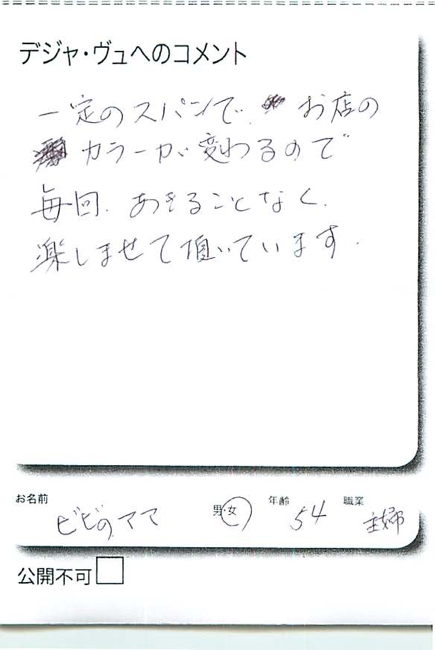 デジャ・ヴュへのコメント
一定のスパンで、お店の
カラーが変わるので
毎回、あきることなく、
楽しませて頂いています。
お名前 ビビのママ 男・女 年齢 54 職業 主婦
公開不可